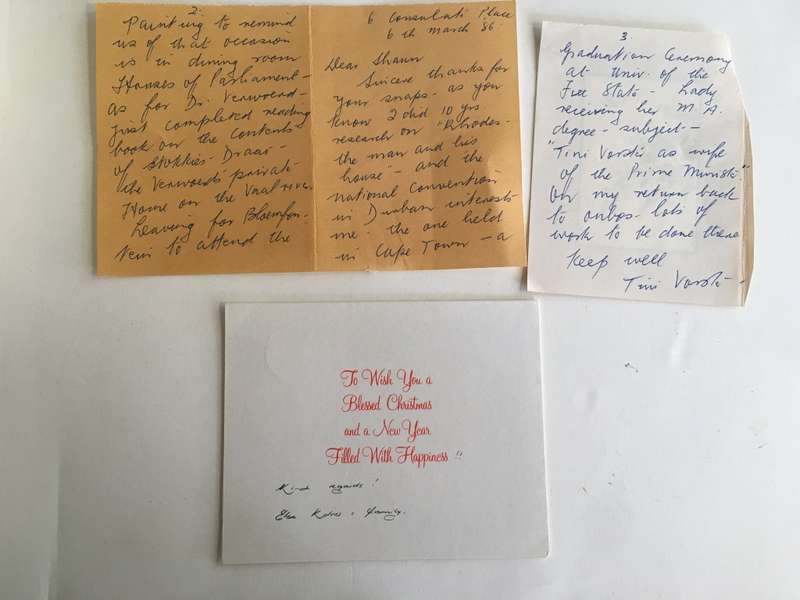 6 Consulati Place
6th March '86
Dear Shaun
Sincere thanks for
your snaps - as you
know I did 10 yrs.
research on "Rhodes -
the man and his
house - and the
National Convention
in Durban interests
me - the one held
in Cape Town - a
2.
Painting to remind
us of that occasion
is in dining room
Houses of Parliament -
as for Dr. Verwoerd -
just completed reading
book on the contents
of Stokkies-Draai -
the Verwoerds private
Home on the Vaal river
Leaving for Bloemfon-
tein to attend the
3.
Graduation Ceremony
at Univ. of the
Free State - Lady
receiving her M.A.
degree - subject -
"Tini Vorster as wife
of the Prime Minister"
On my return back
to lots of
work to be done there
Keep well
Tini Vorster
To Wish You a
Blessed Christmas
and a New Year
Filled With Happiness !!
Kind regards!
& family.